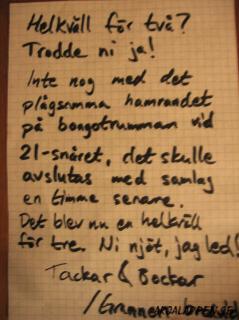 Helkväll för två?
Trodde ni ja!
Inte nog med det
plågsamma hamrandet
på bongotrumman vid
21-snåret, det skulle
avslutas med samlag
en timme senare.
Det blev nu en helkväll
för tre. Ni njöt, jag led!
Tackar & Bockar
/Grannen